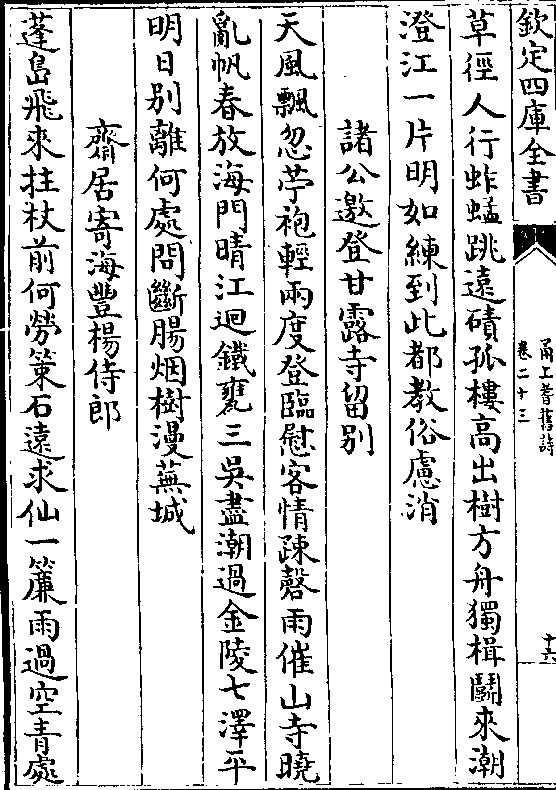 欽定四庫全書
甬上耆舊詩
卷二十三
十六
草徑人行蚱蜢跳遠磧孤樓高出樹方舟獨楫鬭來潮
澄江一片明如練到此都教俗慮消
諸公邀登甘露寺留别
天風飄忽苧袍輕兩度登臨慰客情踈磬雨催山寺曉
亂帆春放海門晴江迴鐵甕三吳盡潮過金陵七澤平
明日别離何處問斷腸烟樹漫蕪城
齋居寄海豐楊侍郎
蓬島飛來拄杖前何勞策石遠求仙一簾雨過空青處